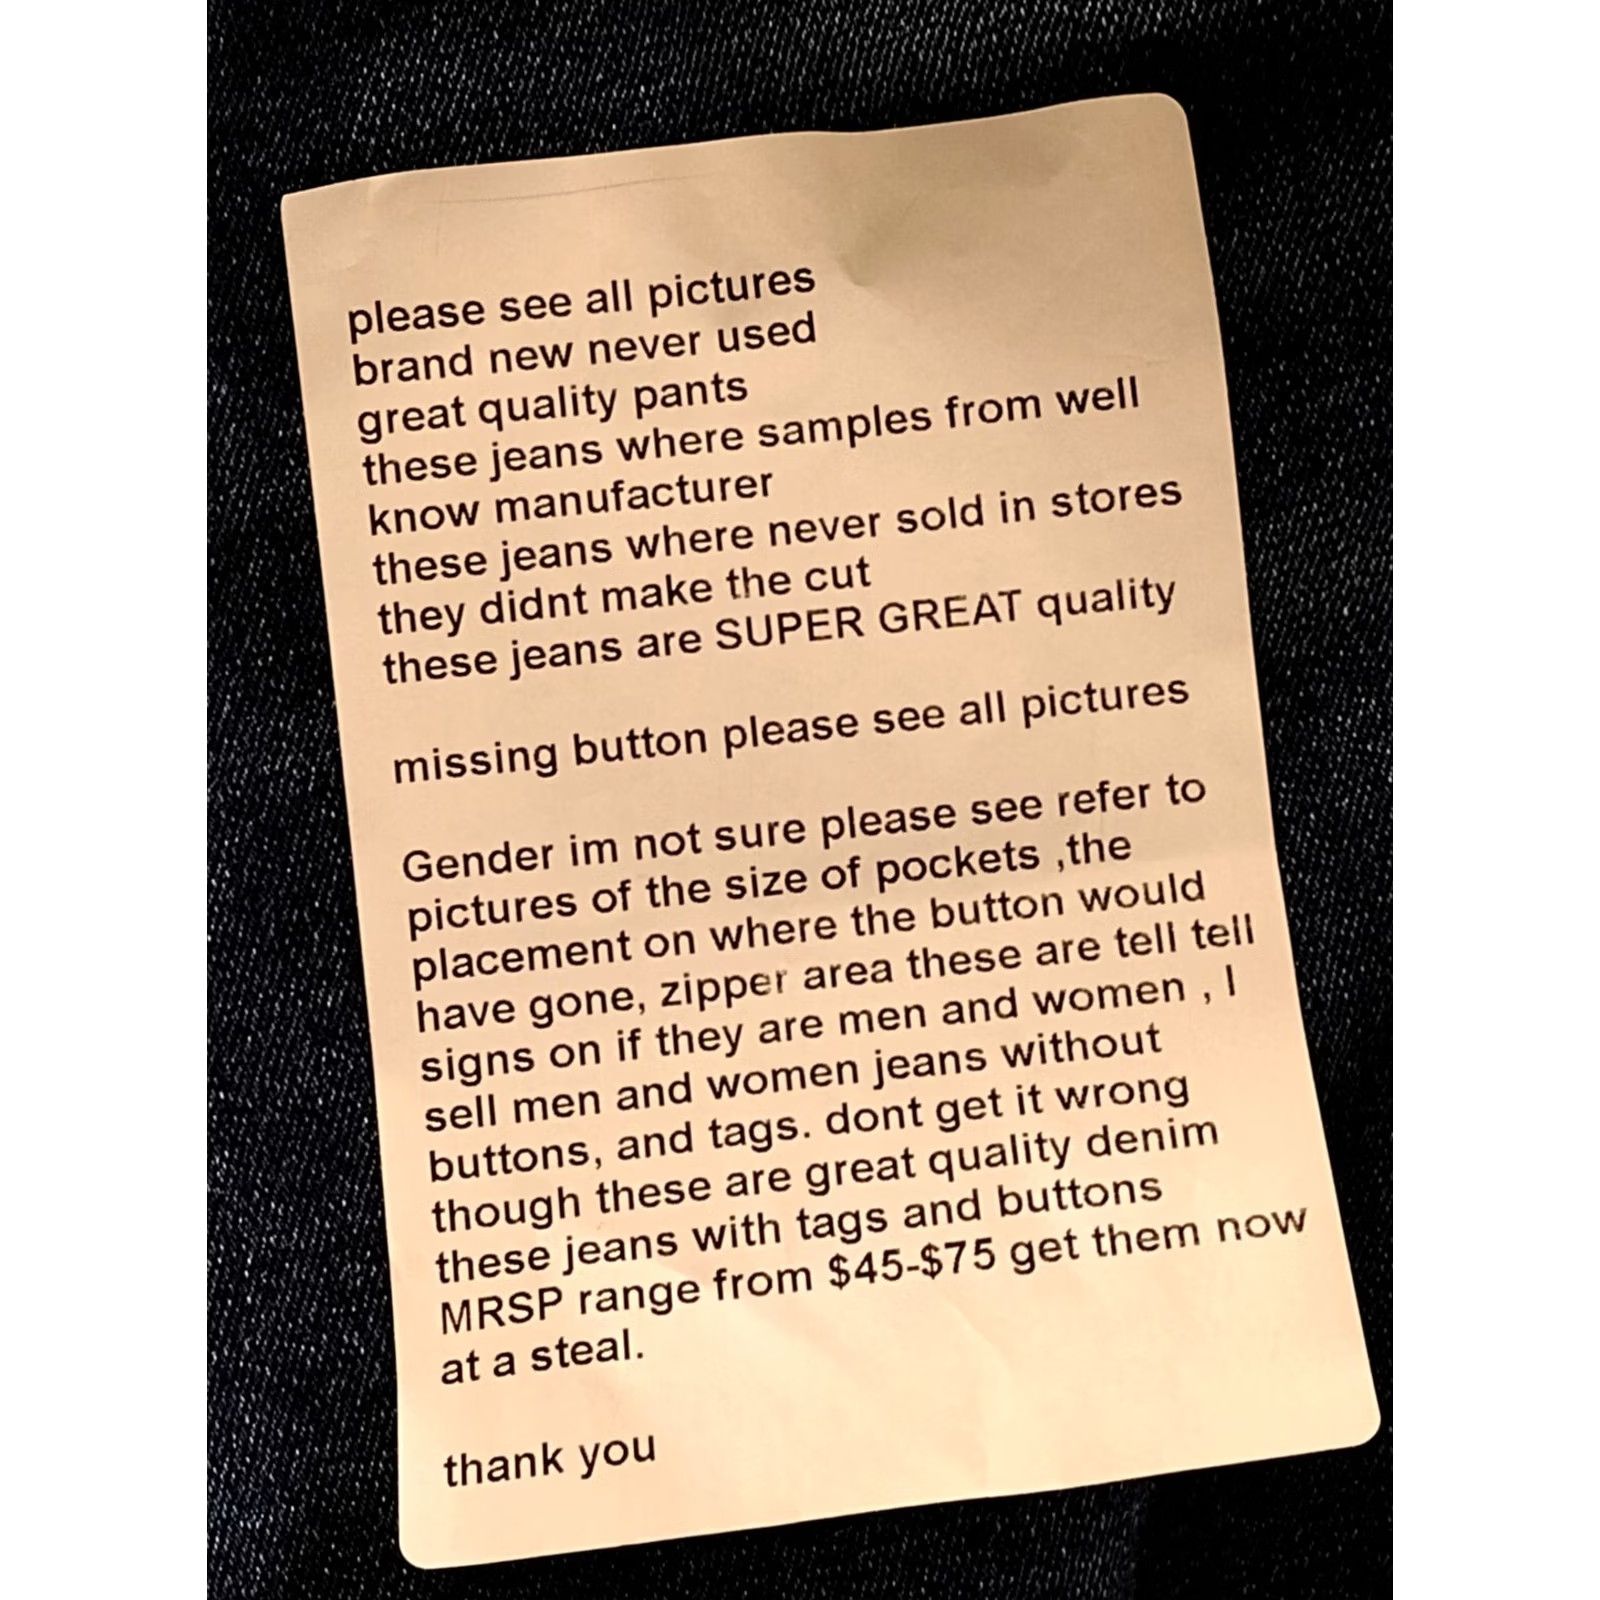 please see all pictures
brand new never used
great quality pants
these jeans where samples from well
know manufacturer
these jeans where never sold in stores
they didnt make the cut
these jeans are SUPER GREAT quality
missing button please see all pictures
Gender im not sure please see refer to
pictures of the size of pockets ,the
placement on where the button would
have gone, zipper area these are tell tell
signs on if they are men and women , I
sell men and women jeans without
buttons, and tags. dont get it wrong
though these are great quality denim
these jeans with tags and buttons
MRSP range from $45-$75 get them now
at a steal.
thank you